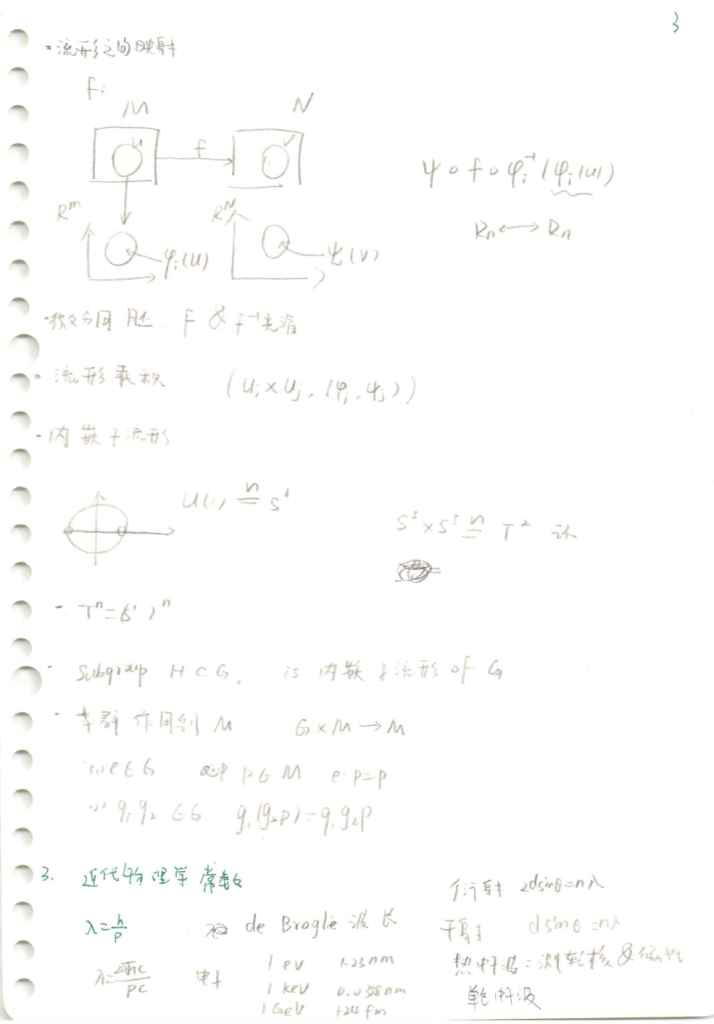 3
· 流形之间映射
f:
M N
U f V
R^m R^N
φi(U) ψ(V)
ψ∘f∘φi⁻¹(φi(U))
Rn ⟷ Rn
· 微分同胚 f & f⁻¹光滑
· 流形乘积 (Ui×Uj, (φi, ψj))
· 内嵌子流形
U(1) ≅ S¹
S¹×S¹ ≅ T² 环
· Tⁿ=(S¹)ⁿ
· Subgroup H⊂G, is 内嵌子流形 of G
· 李群作用到 M G×M→M
(i) e∈G p∈M e·p=p
(ii) g₁g₂∈G g₁(g₂p)=g₁g₂p
3. 近代物理学常数
λ=h/p de Brogle 波长
λ=2πħc/pc 电子
1 ev 1.23nm
1 keV 0.038nm
1 GeV 1.24 fm
衍射 2dsinθ=nλ
干涉 dsinθ=nλ
热中子波:测轻核&